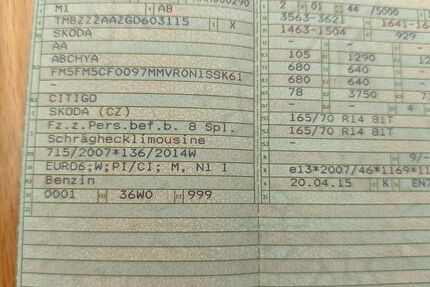 M1 AB
2 01 44 /5000
TMBZZZAAZGD603115 X
3563-3621 1641-16
SKODA
1463-1504 929
AA
ABCHYA
105 1290
FM5FM5CF0097MMVR0N1SSK61
680 640
-
680 640
CITIGO
78 3750
SKODA (CZ)
- - 4
Fz.z.Pers.bef.b. 8 Spl.
165/70 R14 81T
Schräghecklimousine
165/70 R14 81T
715/2007*136/2014W
EURO6;W;PI/CI; M, N1 I
9/-
Benzin
e13*2007/46*1169*11
0001 36W0 999
20.04.15 K